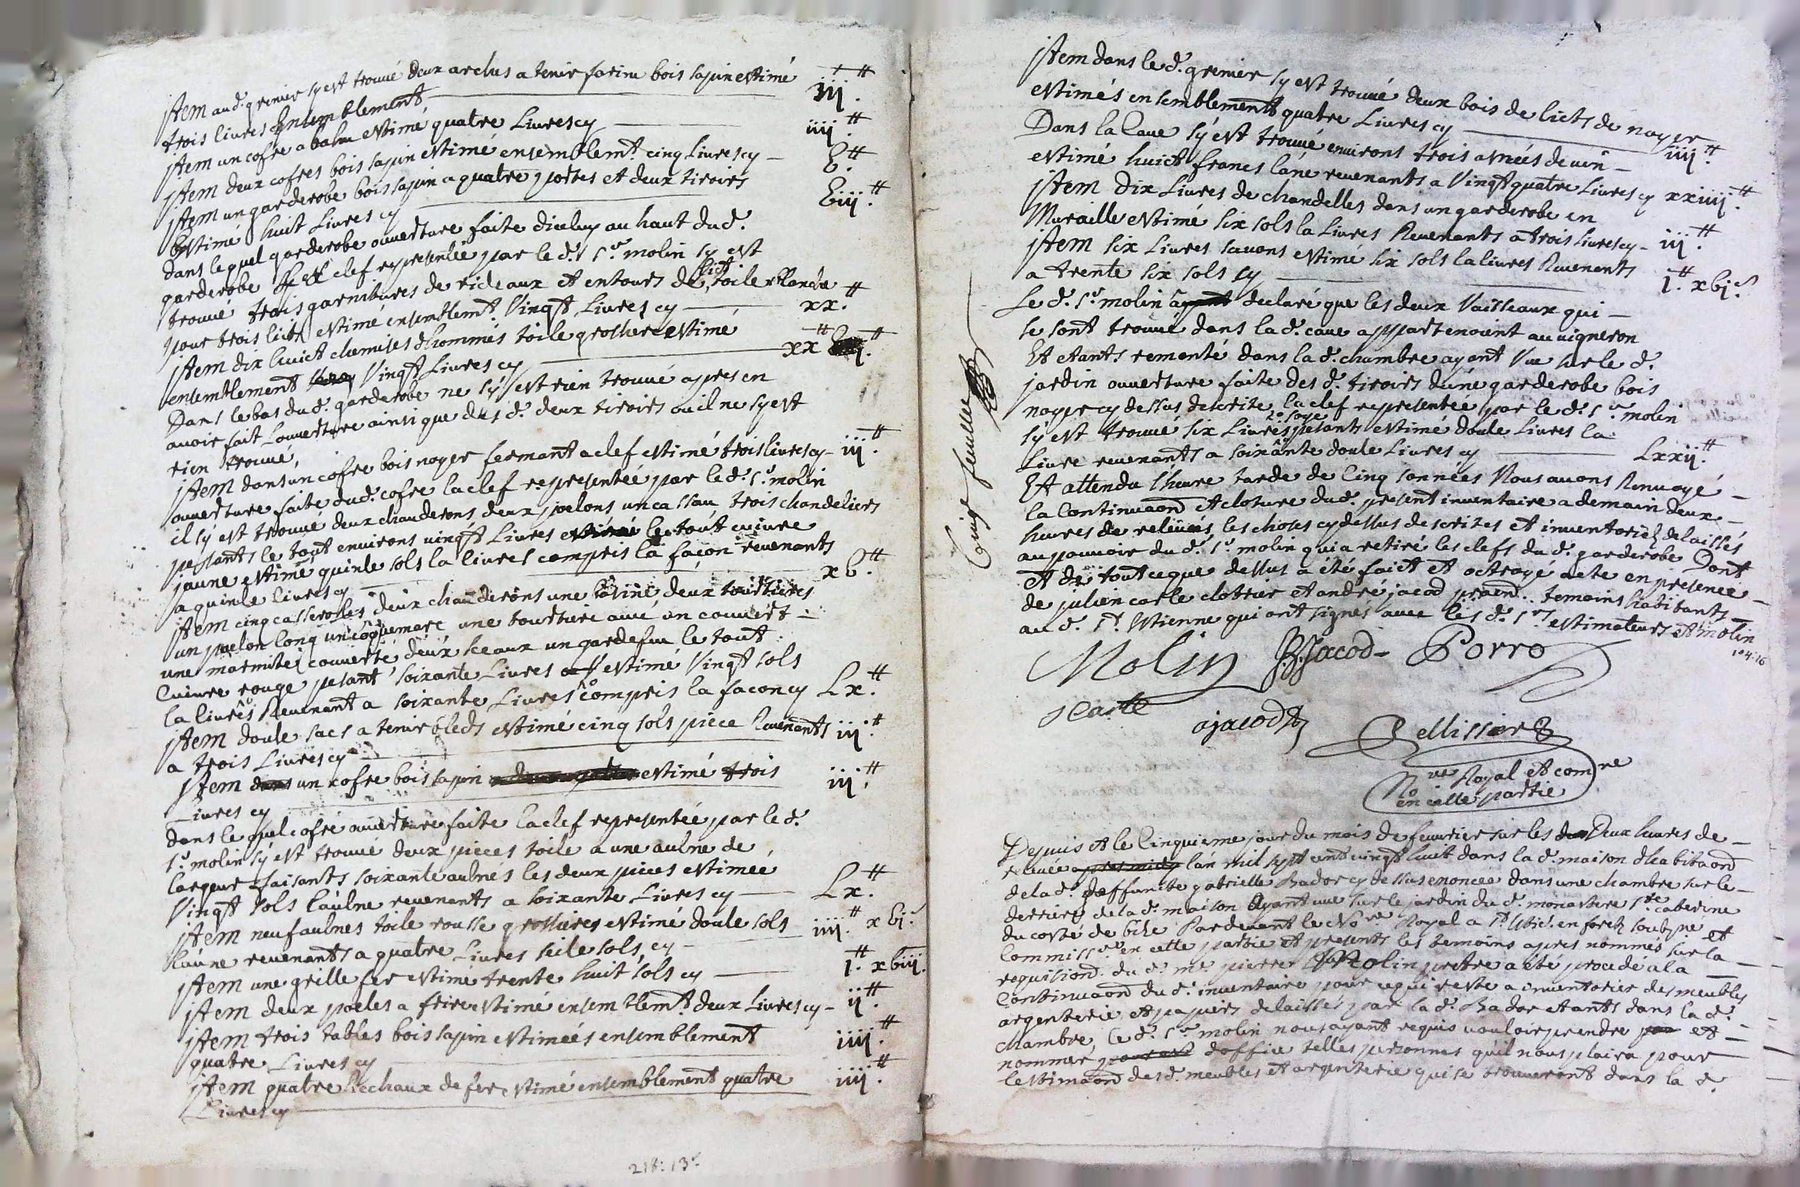 jtem aud. grenier sy est trouué deux arches a tenir farine bois sapin estimé
trois livres Ensemblement iij.tt
jtem un cofre a bahu estimé quatre Livres cy iiij.tt
jtem deux cofres bois sapin estimé ensemblemt. cinq Livres cy v.tt
jtem un garderobe bois sapin a quatre portes et deux tiroirs
Estimé huit Livres cy viij.tt
dans lequel garderobe ouverture faite dicelluy au haut du d.
garderobe clef representée par le d. sr. molin sy est
trouvé trois garnitures de rideaux et entours de lict toile blanche
pour trois licts estimé ensemblemt. Vingt Livres cy xx.tt
jtem dix huict chemises dhommes toile grossiere estimé
ensemblement Vingt Livres cy xx.tt
Dans le bas du d. garderobe ne sy est rien trouué apres en
auoir fait Louverture ainsi que des d. deux tiroirs ou il ne sy est
rien trouué,
jtem dans un cofre bois noyer fermant a clef estimé trois livres cy iij.tt
ouverture faite dud. cofre la clef representée par le d. sr. molin
il sy est trouué deux chauderons, deux poelons un cassau trois chandeliers
pesants le tout environs vingt Livres le tout cuivre
jaune estimé quinse sols la livres compris la façon revenants
a quinse livres cy xv.tt
jtem cinq casserolles deux chauderons une basine deux tourtieres
un poelon long un coquemare une tourtiere auec un couvert
une marmite couverte, deux seaux un gardefeu le tout
Cuivre rouge pesant soixante Livres estimé Vingt sols
la livres Revenant a soixante Livres compris la facon cy Lx.tt
jtem douse sacs a tenir bleds estimé cinq sols piece Revenants
a trois Livres cy iij.tt
jtem un cofre bois sapin estimé trois
Livres cy iij.tt
dans lequel cofre ouverture faite la clef representée par le d.
sr. molin sy est trouué deux pieces toile a une aulne de
largeur faisants soixante aulnes les deux pieces estimée
Vingt sols laulne revenants a soixante Livres cy Lx.tt
jtem neuf aulnes toile rousse grossieres estimé douse sols
laune revenants a quatre Livres seise sols, cy iiij.tt xvj.s
jtem une grille fer estimé trente huit sols cy j.tt xviij.s
jtem deux poeles a frire estimé ensemblemt. deux Livres cy ij.tt
jtem trois tables bois sapin estimées ensemblement
quatre Livres cy iiij.tt
jtem quatre Rechaux de fer estimé ensemblement quatre
Livres cy iiij.tt
218: 13.s
jtem dans le d. grenier sy est trouué deux bois de licts de noyer
estimés ensemblement quatre Livres cy iiij.tt
Dans la Caue sy est trouué environs trois asnées de vin
estimé huict francs lane revenants a Vingt quatre Livres cy xxiiij.tt
jtem dix Livres de chandelles dans un garderobe en
Muraille estimé six sols la Livres Revenants a trois Livres cy iij.tt
jtem six Livres sauons estimé six sols la livres Revenents
a trente six sols cy j.tt xvj.s
Le d. sr. molin declaré que les deux Vaisseaux qui
se sont trouué dans la d. caue appartenoient au vigneron
Et etants remonté dans la d. chambre ayant Vue sur le d.
jardin ouverture faite des d. tiroirs dune garderobe bois
noyer cy dessus descrite, la clef representée par le d. sr. molin
sy est trouué six Livres soye pesants estimé douse Livres la
Livre revenants a soixante douse Livres cy Lxxij.tt
Et attendu Lheure tarde de Cinq sonnées Nous auons Renuoyé
la Continuaon et cloture dud. present inventaire a demain deux
heures de releuée, les choses cy dessus descrites et inventoriés delaissés
au pouuoir du d. sr. molin qui a retiré les clefs du d. garderobe Dont
Et de tout ce que dessus a été faict et octroyé acte en presence
de julien carle cloteur et andré jacod temoins habitants
au d. st. Estienne qui ont signés auec les d. srs. estimateurs et molin
104:16
Cinq feuillet
Molin BJacod Porro
jCarle
ajacod
Pellissier
Nore Royal et comre
en cette partie
Depuis et le Cinquieme jour du mois de feuurier sur les Deux heures de
releuée lan mil sept cent vingt huit dans la d. maison dhabitaon
de la d. deffuncte gabrielle Bador cy dessus enoncée dans une chambre sur le
derriere de la d. maison Ayant vue sur le jardin du d. monastere ste. catherine
du costé de bise Pardeuant le Nore Royal a st. en forêz soubsne et
Commissre. en cette partie et presents les temoins apres nommés sur la
requisiond. du d. me pierre Molin pretre a été procedé a la
Continuaon du d. inventaire pour ce qui reste a inventorier des meubles
argenterie et papiers delaissés par la d. Bador etants dans la d.
chambre, Le d. sr. molin nous ayant requis vouloir prendre et
nommer doffice telles personnes quil nous plaira pour
Lestimaon des d. meubles et argenterie qui se trouueront dans la d.